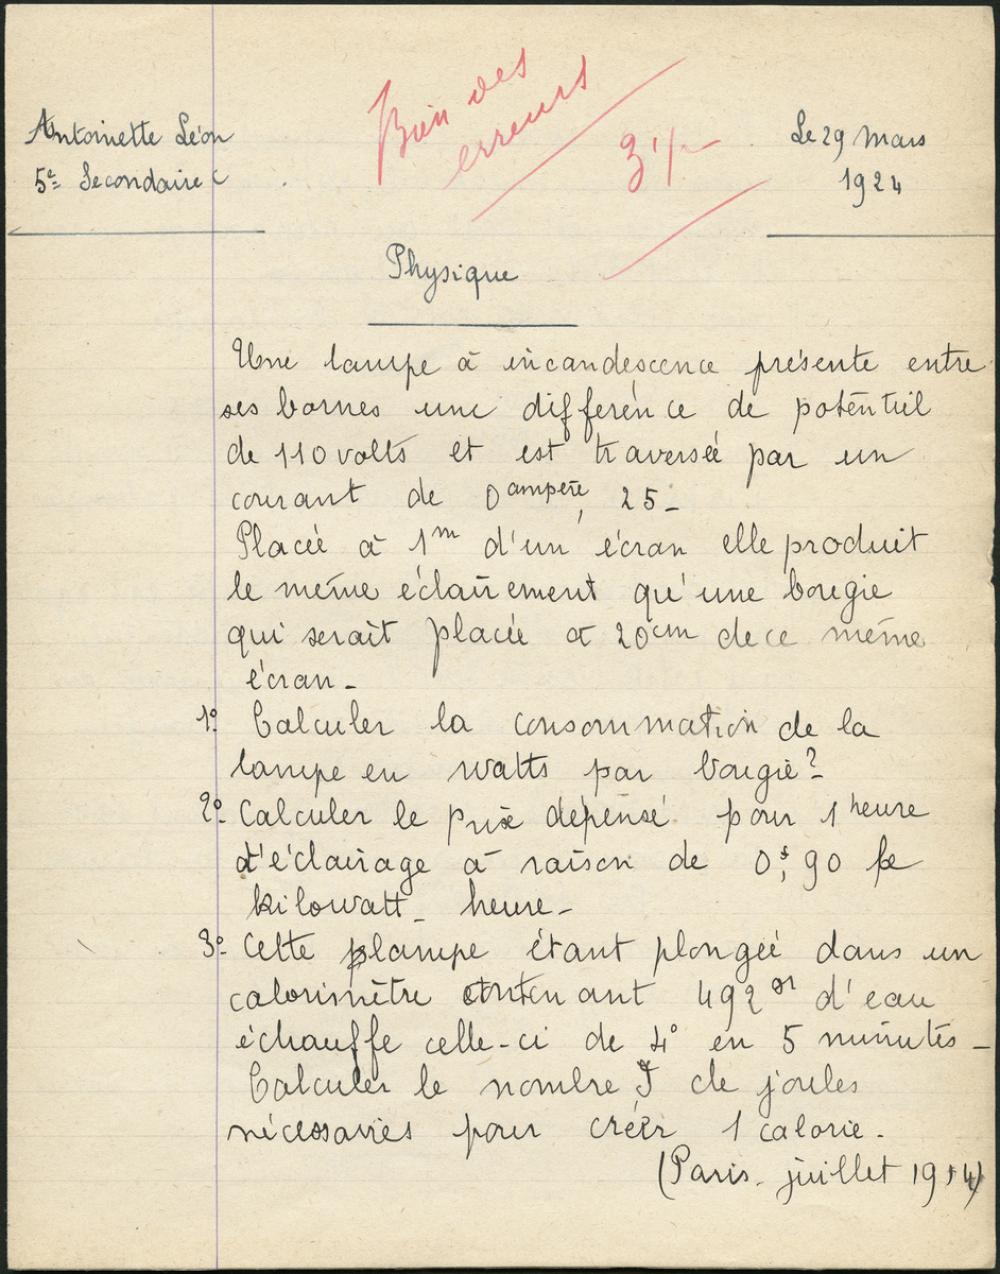 Antoinette Léon
5e Secondaire C
Bien des
erreurs
Le 29 Mars
1924
Physique
Une lampe à incandescence présente entre
ses bornes une différence de potentiel
de 110 volts et est traversée par un
courant de 0 ampère, 25_
Placée à 1m d'un écran elle produit
le même éclairement qu'une bougie
qui serait placée à 20cm de ce même
écran_
1º Calculer la consommation de la
lampe en watts par bougie?_
2º_ Calculer le prix dépensé pour 1 heure
d'éclairage à raison de 0f,90 le
kilowatt_ heure_
3º_ Cette lampe étant plongée dans un
calorimètre contenant 492gr d'eau
échauffe celle-ci de 4° en 5 minutes_
Calculer le nombre J de joules
nécessaires pour créer 1 calorie.
(Paris_ juillet 1914)